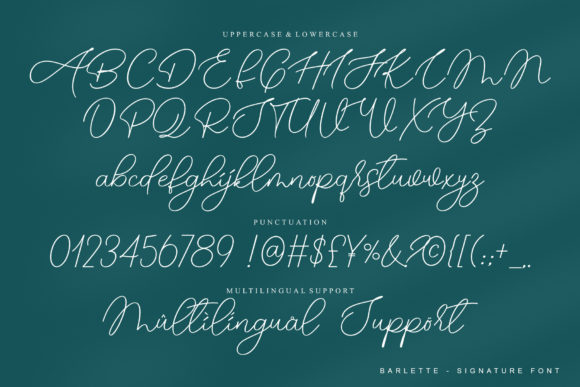 UPPERCASE & LOWERCASE
ABCDEFGHIJKLMN
OPQRSTUVWXYZ
abcdefghijklmnopqrstuvwxyz
PUNCTUATION
0123456789 !@#$£¥%&®©{[(:;+_,.
MULTILINGUAL SUPPORT
Mûltìlínguâl Suppört
BARLETTE - SIGNATURE FONT